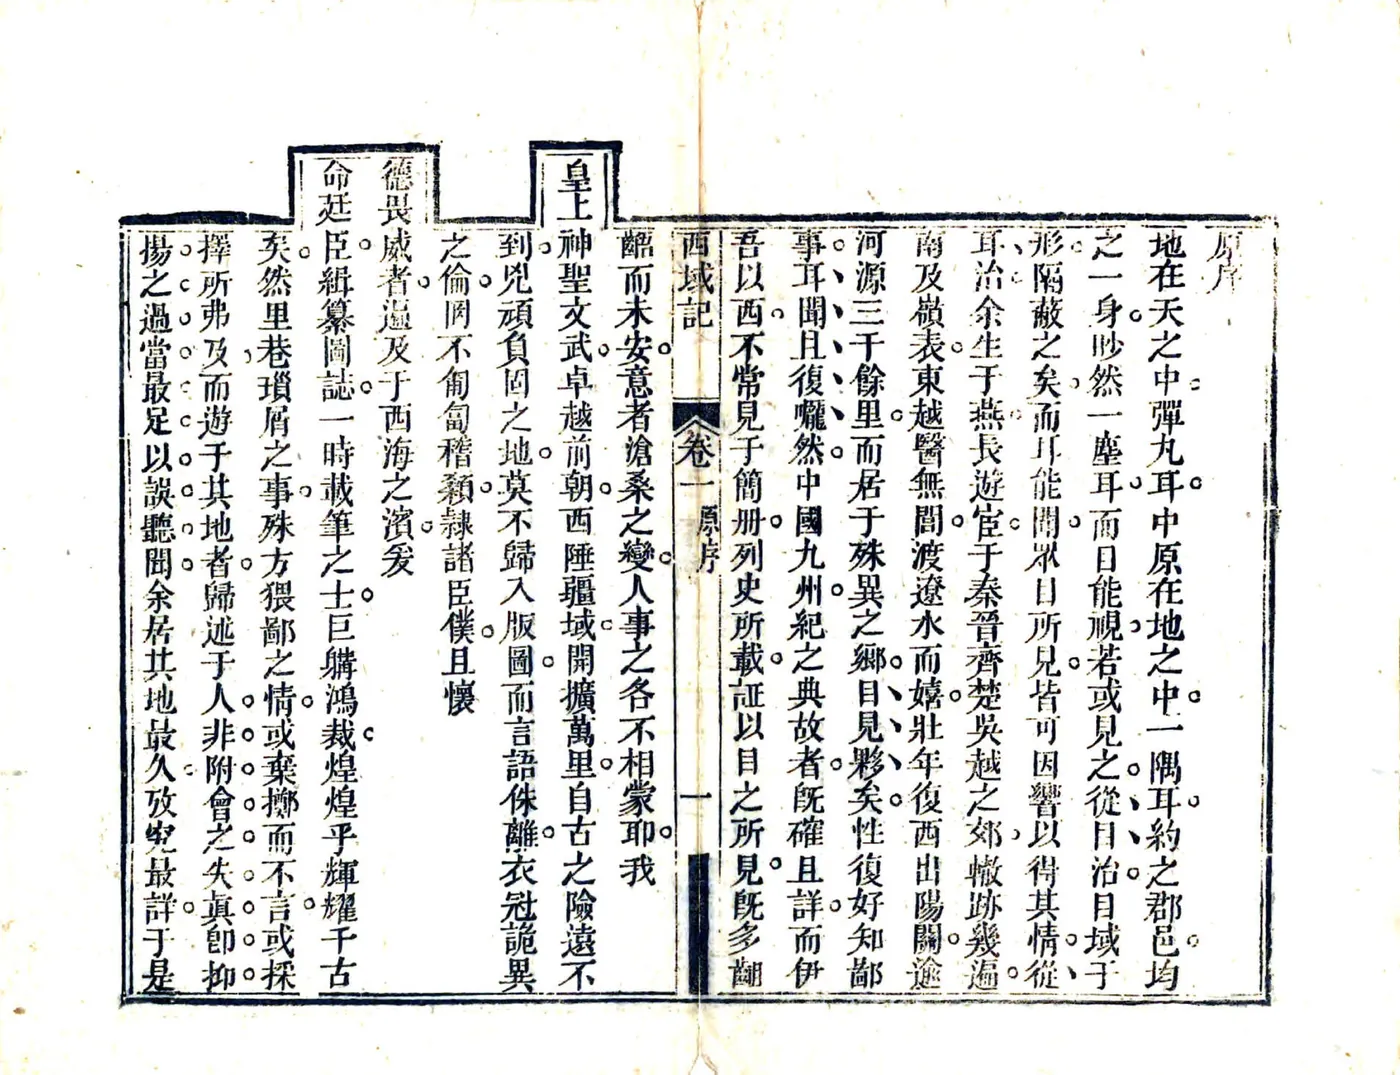 原序
地在天之中彈丸耳中原在地之中一隅耳約之郡邑均
之一身眇然一塵耳而目能視若或見之從目治目域于
形隔蔽之矣而耳能聞眾目所見皆可因響以得其情從
耳治余生于燕長遊宦于秦晉齊楚吳越之郊轍跡幾遍
南及嶺表東越醫無閭渡遼水而嬉壯年復西出陽關逾
河源三千餘里而居于殊異之鄉目見夥矣性復好知鄙
事耳聞且復囑然中國九州紀之典故者旣確且詳而伊
吾以西不常見于簡册列史所載証以目之所見旣多齟
西域記
卷一
原序
一
齬而未安意者滄桑之變人事之各不相蒙耶我
皇上神聖文武卓越前朝西陲疆域開擴萬里自古之險遠不
到兇頑負固之地莫不歸入版圖而言語侏離衣冠詭異
之倫罔不匍匐稽顙隷諸臣僕且懷
德畏威者遍及于西海之濱爰
命廷臣緝纂圖誌一時載筆之士巨購鴻裁煌煌乎輝耀千古
矣然里巷瑣屑之事殊方猥鄙之情或棄擲而不言或採
擇所弗及而遊于其地者歸述于人非附會之失眞卽抑
揚之過當最足以誤聽聞余居其地最久攷究最詳于是